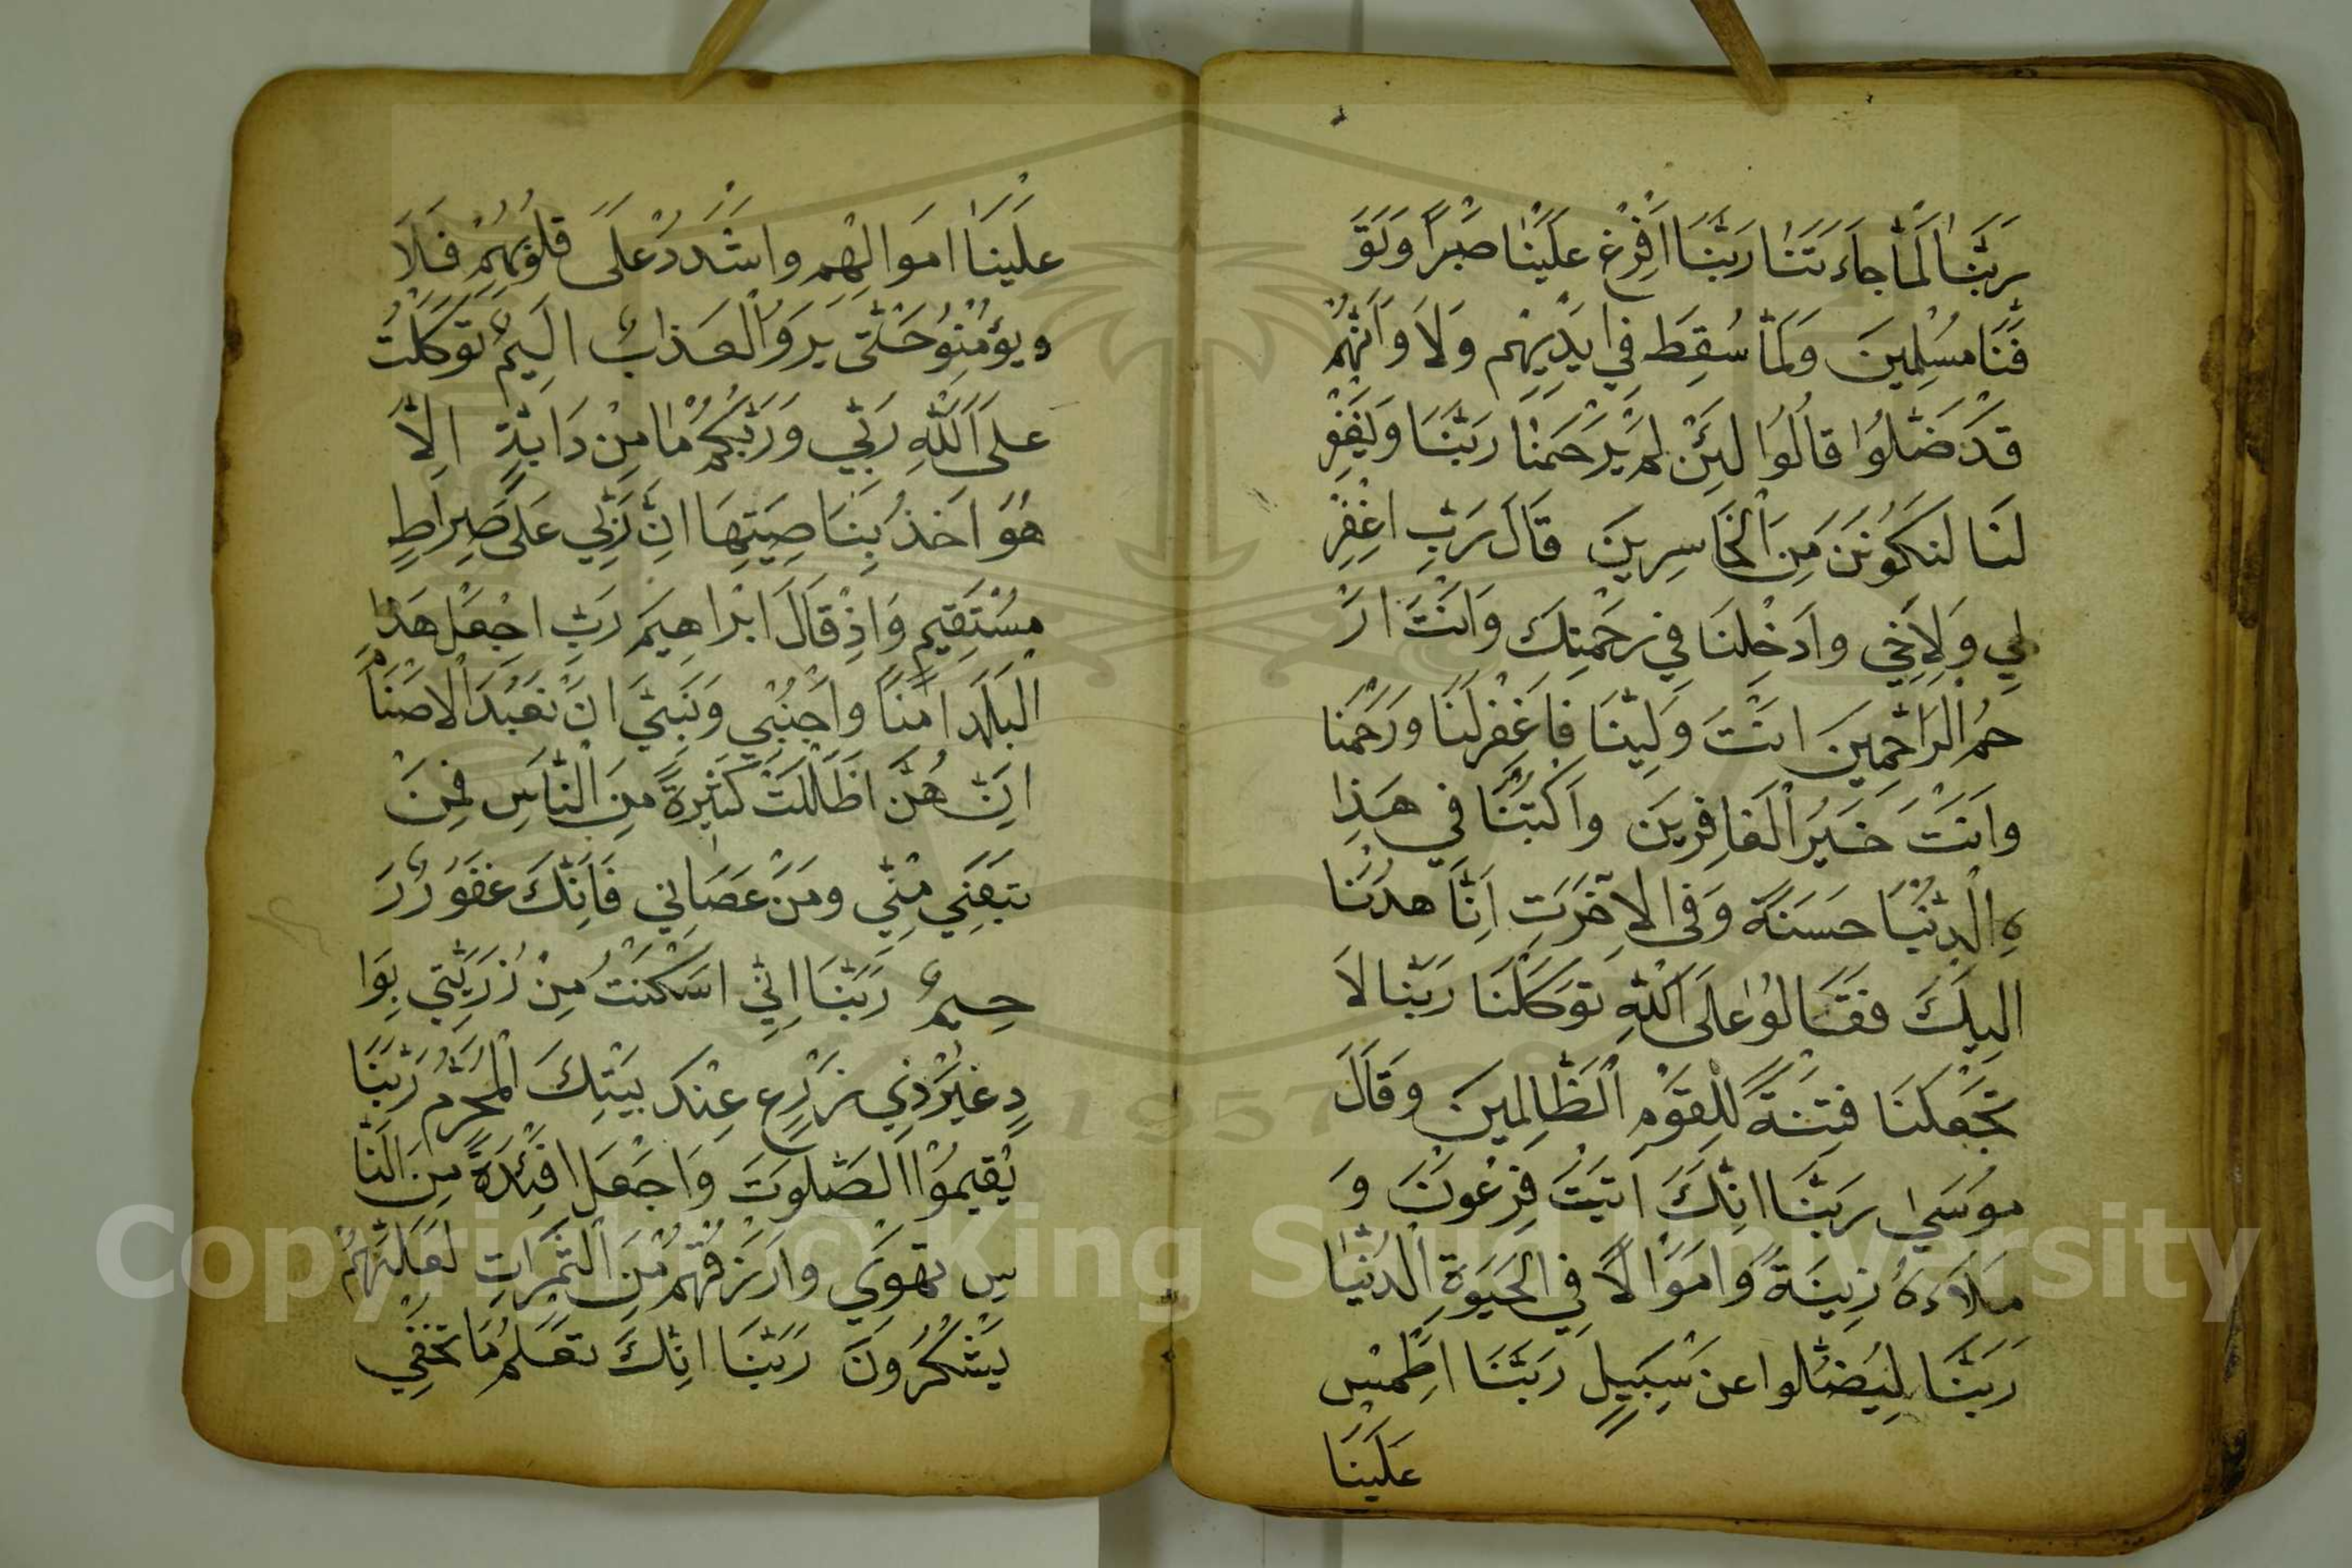 رَبَّنَا لَمَّا جَاءَتَنَا رَبَّنَا اَفْرِغْ عَلَيْنَا صَبْرًا وَتَوَ
فَّنَا مُسْلِمِينَ وَلَمَّا سُقِطَ فِي ايَدِيهِم وَلَا وَاَنَّهُمْ
قَدْ ضَلُّوا قَالُوا لَئِنْ لَمْ يَرْحَمْنَا رَبَّنَا وَيَغْفِرْ
لَنَا لَنَكُونَنَّ مِنَ الْخَاسِرِينَ قَالَ رَبِّ اغْفِرْ
لِي وَلِاَخِي وَادَخِلْنَا فِي رَحْمَتِكَ وَاَنْتَ ارَ
حَمُ الرَّاحِمِينَ انْتَ وَلِيُّنَا فَاغْفِرْلَنَا وَرَحْمَنَا
وَانَتْ خَيَرُ الْغَافِرِينَ وَاَكْتُبْنَا فِي هَذِ
هِ الْدُّنْيَا حَسَنَةً وَفِي الْاخِرَتِ اِنَّا هُدْنَا
الَيِكَ فَقَالُوا عَلَى اَللَّهِ تَوَكَلْنَا رَبَّنَا لَا
تَجْعَلْنَا فِتِنَةً لِلْقَوْمِ الْظَّالِمِينَ وَقَالَ
مُوسَىٰ رَبَّنَا انِّكَ اَتَيَتْ فِرْعَونَ وَ
مَلَاءَهُ زِينَةً وَامَوْالًا فِي الْحَيَوةِ الْدُنْيَا
رَبَّنَا لِيَضُلُّوا عَنْ سَبِيلٍ رَبَّنَا اطْمِسْ
عَلَيْنَا
عَلَيْنَا امَوَالِهِم وَاشْدُدْ عَلَى قُلُوبُهِمْ فَلَا
ويُؤمْنِوُ حَتَّى يَرَوُ الْعَذَابُ الَيِمٌ تَوَكَلْتُ
عَلَى اَللَّهِ رَبِّي وَرَبُّكُمْ مَا مِنْ دَابَّةٍ اِلَّا
هُوَ اخَذُ بِنَاصِيَتِهَا انِّ رَبِّي عَلَى صِرَاطٍ
مُسْتَقِيمٍ وَاِذْ قَالَ ابْرَاهِيمَ رَبِّ اجْعَلْ هَذَا
الْبَلَدَ امَنًا وَاجْنُبْنِي وَبَنِيَّ انَ نَعْبُدَ الْاصْنَامَ
انِّ هُنَّ اضَلَلْتَ كَثِيرَةً مِنَ الْنَّاسِ فَمِنَ
تَبَعَنِي مِنِّي وَمَنْ عَصَانِي فَانِّكَ غَفَوُرٌ رَ
حِيمٌ رَبَّنَا اِنِّي اسَكْنَتُ مِنْ ذُرِّيَتِي بِوَا
دٍ غَيْرَ ذِي زَرْعٍ عِنْدَ بَيْتِكَ الْمُحَرَّمِ رَبَّنَا
يُقِيمُوْا الصَّلَوتَ وَاجَعَلَ افَئِدَةً مِنَ الْنَّا
سِ تَهْوِي وَارْزُقْهُمْ مِنَ الْثَّمَرَاتِ لَعَلَّهُمْ
يَشْكُرُونَ رَبَّنَا انِّكَ تَعَلمُ مَا نُخْفِي
Copyright © King Saud University
1957